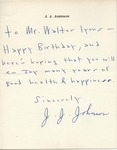 J. J. JOHNSON
to Mr. Walter Lyons—
Happy Birthday, and
here's hoping that you will
en Joy many years of
good health & happiness.
Sincerely
J. J. Johnson